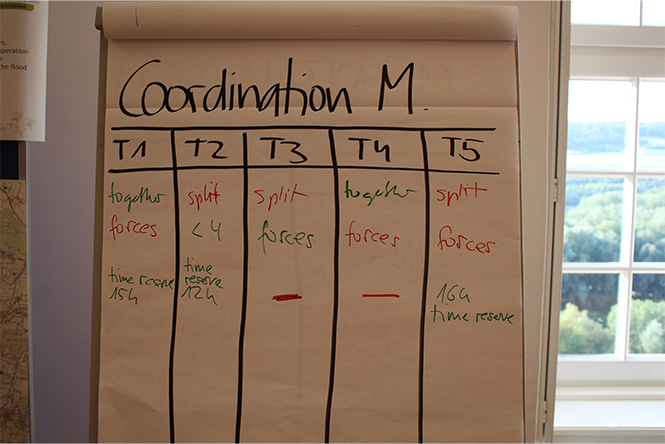 operation
the flood
Coordination M.
T1 T2 T3 T4 T5
together split split together split
forces < 4 forces forces forces
time reserve 15h
time reserve 12h
— —
16h time reserve